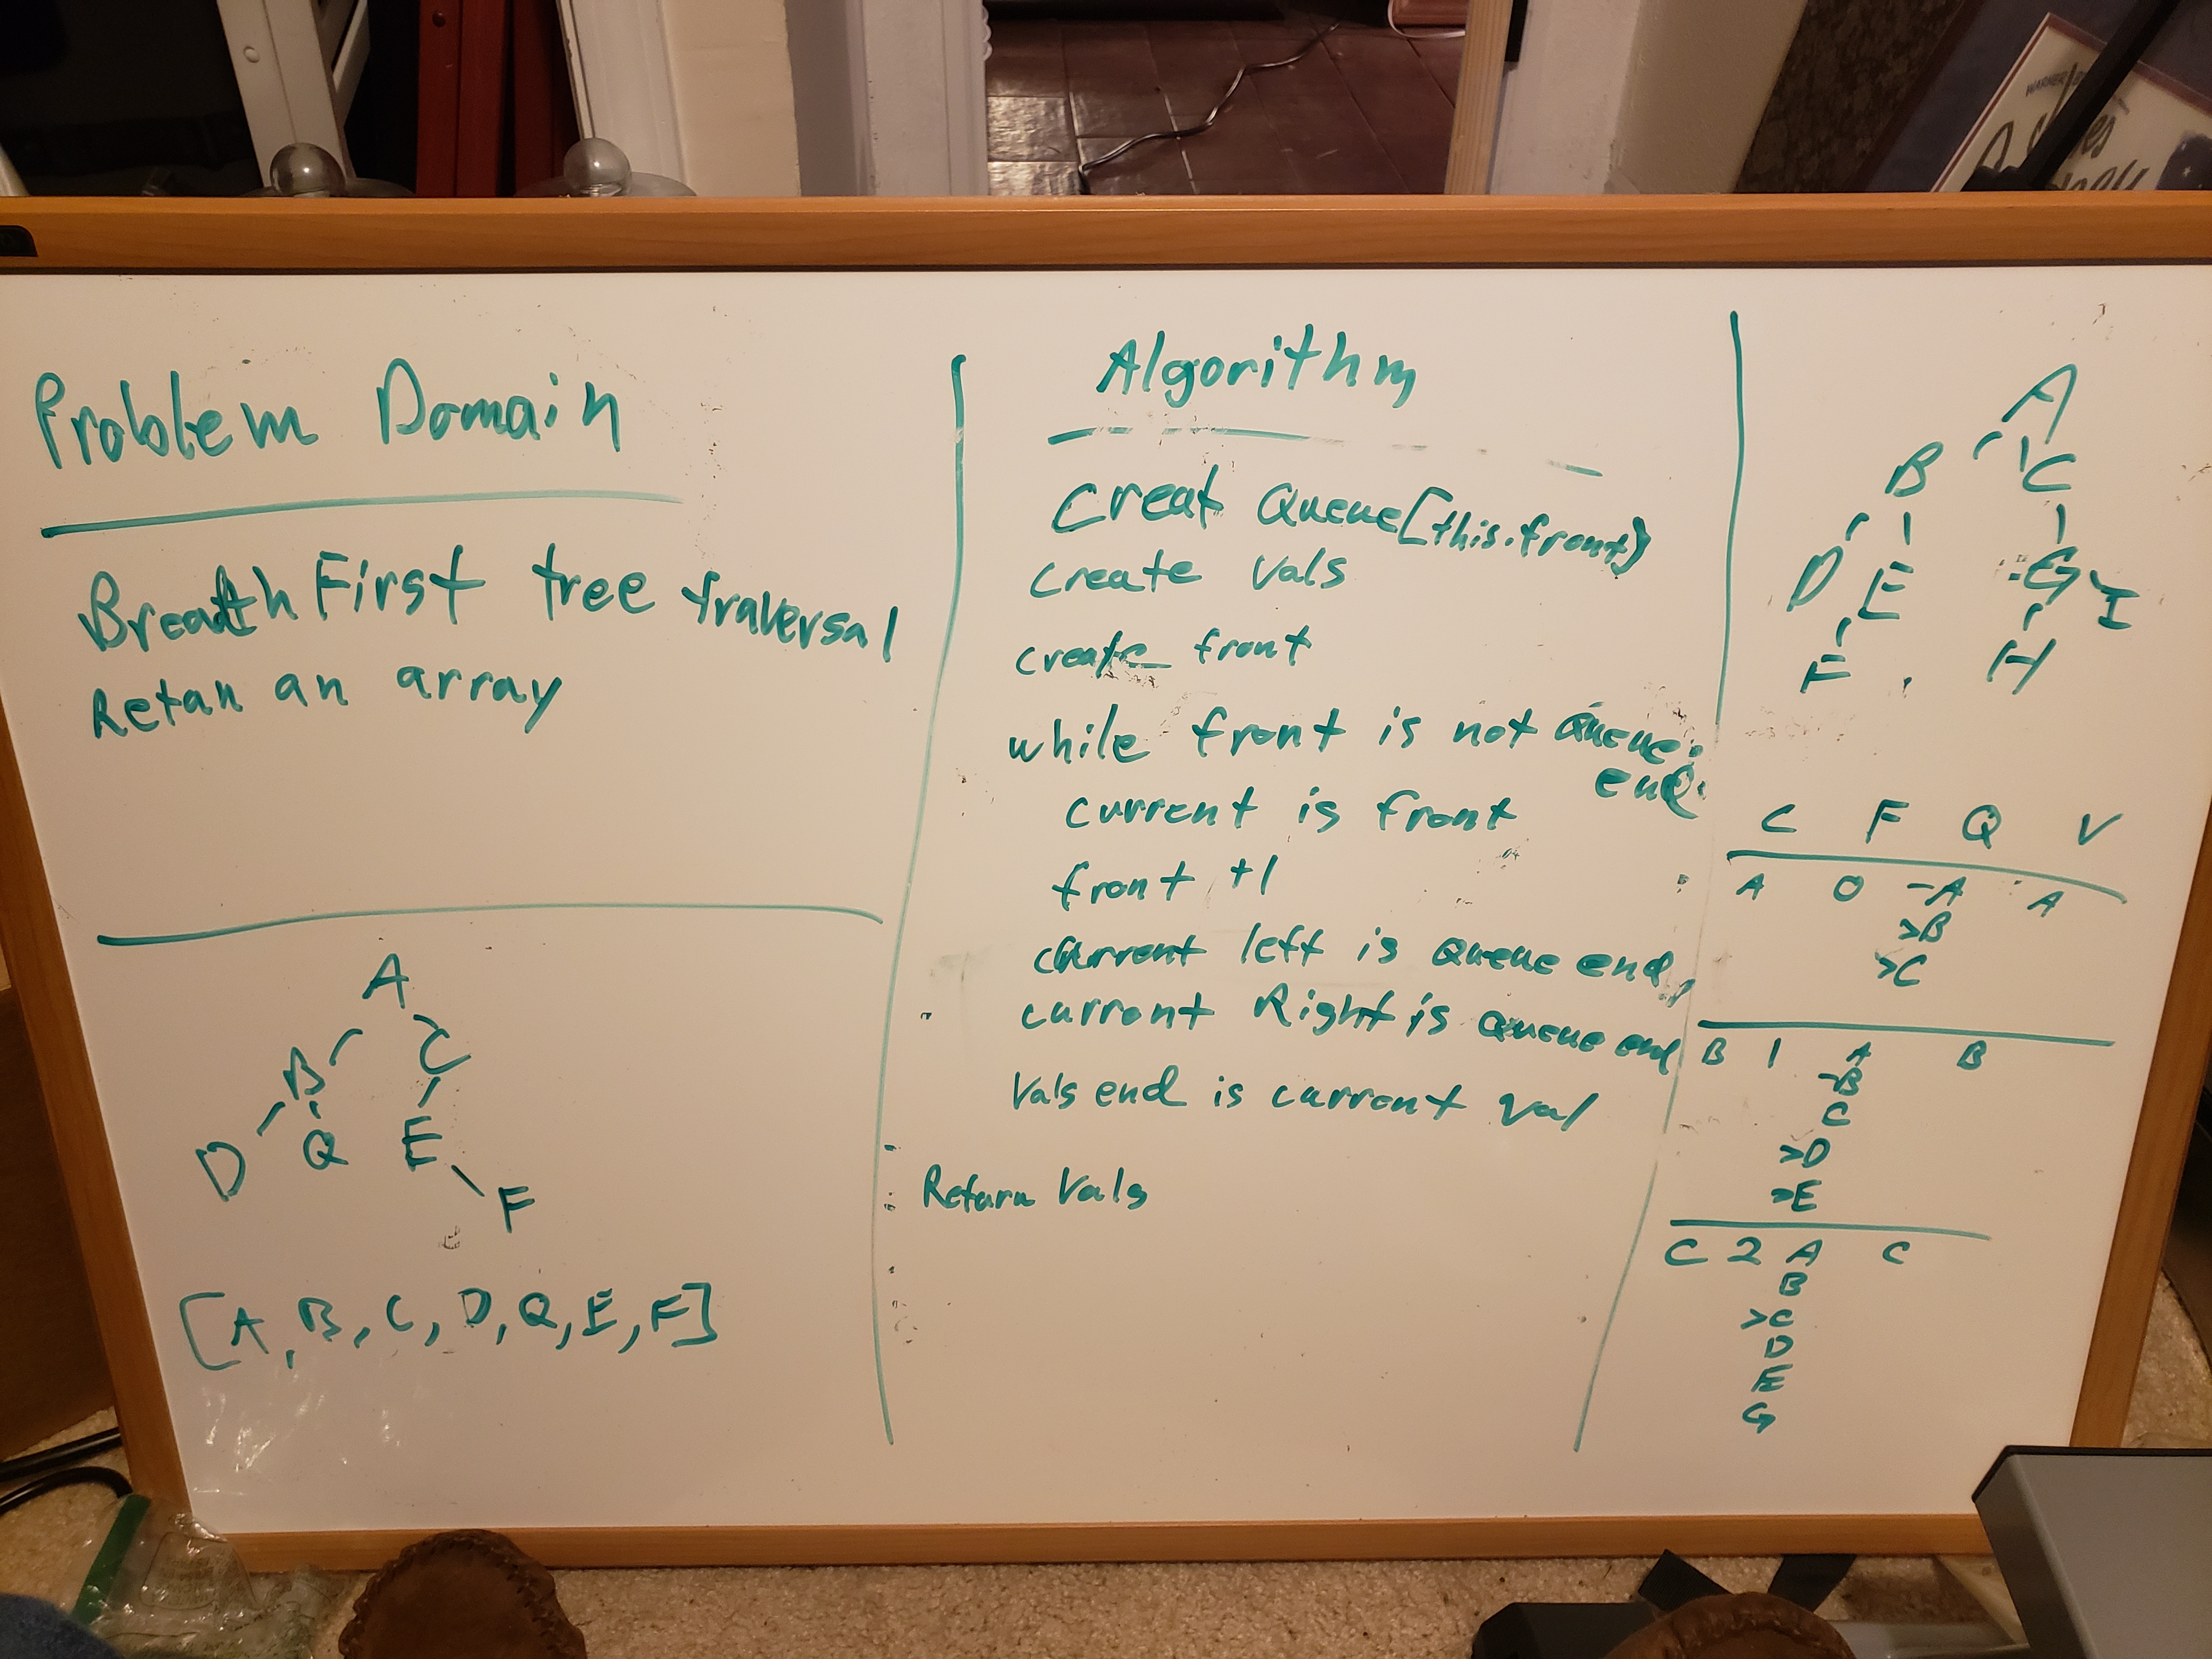 Problem Domain
Breadth First tree traversal
Retan an array
A
B C
D Q E
F
[A, B, C, D, Q, E, F]
Algorithm
Creat Queue[this.front]
create Vals
create front
while front is not Queue.
end.
current is front
front +1
current left is Queue end,
current Right is Queue end
Vals end is current val
Return Vals
A
B C
D E G I
F H
C F Q V
A 0 -A A
>B
>C
B 1 A B
-B
C
>D
>E
C 2 A C
B
>C
D
E
G